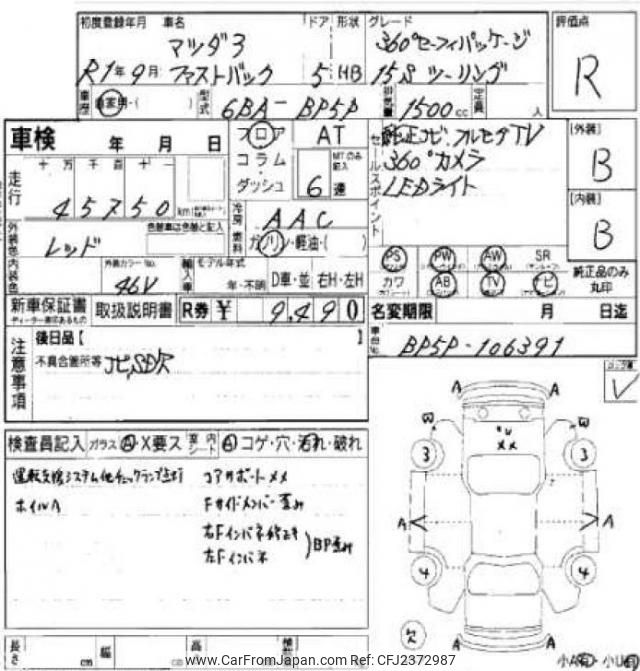 初度登録年月 車名 ドア 形状 グレード 評価点
マツダ3 360°セーフティパッケージ
R1年9月 ファストバック 5 HB 15S ツーリング R
車歴 自家用・( ) 型式 6BA-BP5P 排気量 1500cc 定員 人
車検 年 月 日 フロア AT セールスポイント 純正ナビ フルセグTV [外装]
コラム・ダッシュ MTのみ記入 6速 360°カメラ B
走行 十 万 千 百 十 一 LEDライト
45750 km [内装]
冷房 AAC B
外装色 レッド 色替車は色替と記入 燃料 ガソリン・軽油・( )
PS PW AW SR
カワ AB TV ナビ 純正品のみ丸印
内装色 外装カラーNo. 46V 輸入車 モデル年式 年・不明 D車・並 右H・左H
新車保証書 取扱説明書 R券 ¥ 9,490 名変期限 月 日迄
ディーラー捺印あるもの
注意事項 後日品【 】 車台No. BP5P-106391
不具合箇所等 ナビSD欠
検査員記入 ガラス A・X要ス 室内シート A コゲ・穴・汚れ・破れ
運転支援システム他チェックランプ点灯 コアサポートメメ
ホイルA Fサイドメンバー歪み
右Fインパネ修正キ
左Fインパネ BP歪み
A A
W W
3 3
W
XX
A A
4 4
欠
A A
長さ cm 幅 cm 高
www.CarFromJapan.com Ref: CFJ2372987